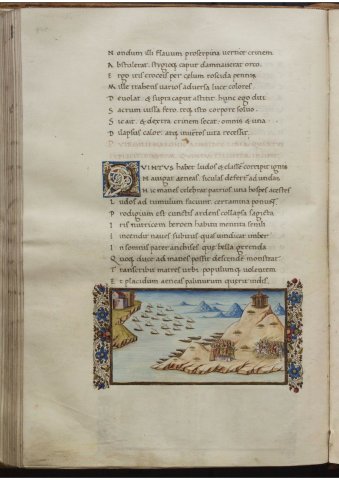 Nondum illi flavum proserpina vertice crinem
Abstulerat. stygioq; caput damnaverat orco.
Ergo iris croceis per celum roscida pennis
Mille trahens varios adverso luce colores
Devolat. & supra caput astitit. hunc ego diti
Sacrum iussa fero. teq; isto corpore solvo.
Sic ait. & dextra crinem secat. omnis & una
Dilapsus calor. atq; in ventos vita recessit.
Quintus habet ludos & classe corripit ignis
Navigat aeneas. siculas defert ad undas
Hic manes celebrat patrios. una hospes acestes
Ludos ad tumulum faciunt. certamina ponunt
Prodigium est cunctis ardens collapsa sagitta
Iris nutricem beroen habitu mentita senili
Incendit naves subitus quas vindicat imber
In somnis pater anchises que bella gerenda
Quoq; duce ad manes possit descende monstrat
Transcribit matres urbi populumq; volentem
Et placidum aeneas palinurum querit undis.